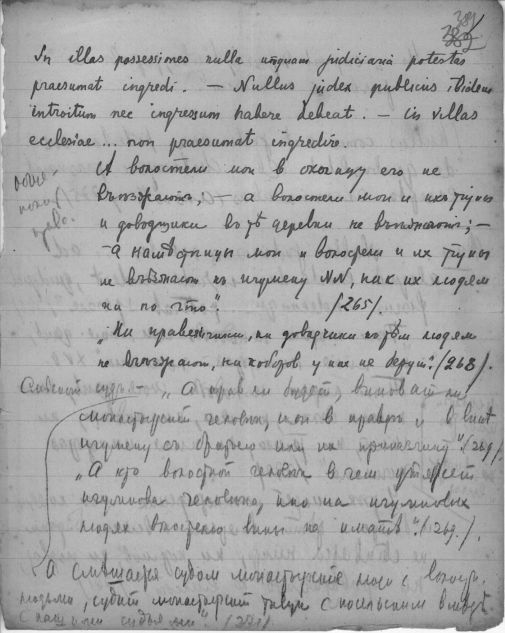 381
382
In illas possessiones nulla unquam judiciaria potestas
praesumat ingredi. — Nullus judex publicus ibidem
introitum nec ingressum habere debeat. — in villas
ecclesiae ... non praesumat ingredire.
А волостели мои в околицу его не
въезжают, — а волостели мои и их тіуны
и доводщики въ тѣ деревни не въезжают; —
— а намѣстницы мои и волостели и их тіуны
не въѣзжают къ игумену NN, ни к их людям
ни по что". /265/.
„Ни праветчики, ни доводчики къ тѣм людям
не въезжают, ни поборов у них не берут". /268/.
судъ — „А прав ли будет, виноват ли
монастырский человек, и он в правде и в вине
игумену съ братьею или их приказчику". /269/.
„А кто волостной человек в чем
игуменова человека, ино на игуменовых
людях волостелю вины не имати". /269/.
А смѣшается судом монастырские люди с волост.
людьми, судит монастырский с
с /271/.